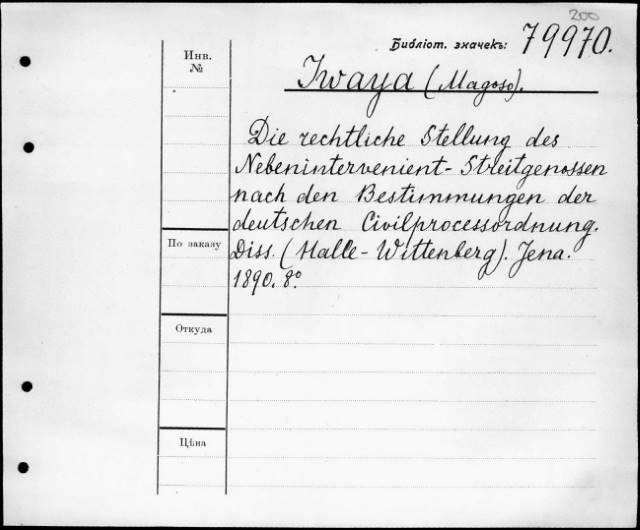 200
Библіот. значекъ: 79970.
Инв.
№
Iwaya (Magoso).
Die rechtliche Stellung des
Nebenintervenient-Streitgenossen
nach den Bestimmungen der
deutschen Civilprocessordnung.
Diss. (Halle-Wittenberg). Jena.
1890. 8º
По заказу
Откуда
Цѣна